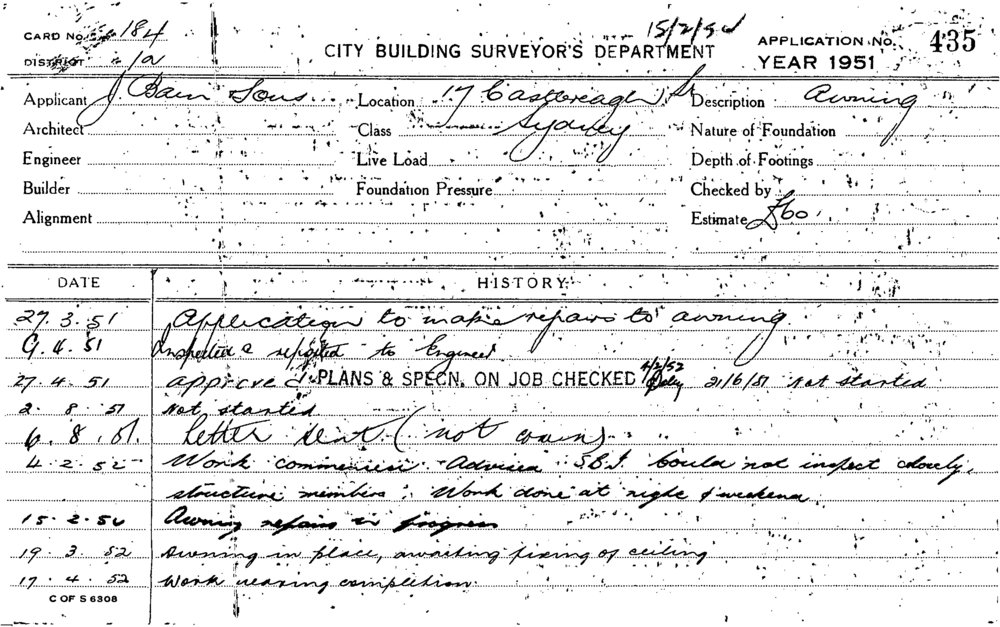 CARD No. 184
15/2/52
CITY BUILDING SURVEYOR'S DEPARTMENT
APPLICATION No. 435
DISTRICT 1a
YEAR 1951
Applicant J. Bain Sons Location 17 Castlereagh St Description Awning
Architect Class Sydney Nature of Foundation
Engineer Live Load Depth of Footings
Builder Foundation Pressure Checked by
Alignment Estimate £60
DATE HISTORY
27.3.51 Application to make repairs to awning
9.4.51 Inspected & reported to Engineer
27.4.51 approved PLANS & SPECN. ON JOB CHECKED 4/2/52 21/6/51 Not started
2.8.51 Not started
6.8.51. Letter sent (not
4.2.52 Work Advised S.B.I. could not inspect closely,
structure members. Work done at night & weekend.
15.2.52 Awning repairs in progress
19.3.52 Awning in place, awaiting fixing of ceiling
17.4.52 Work nearing completion.
C OF S 6308